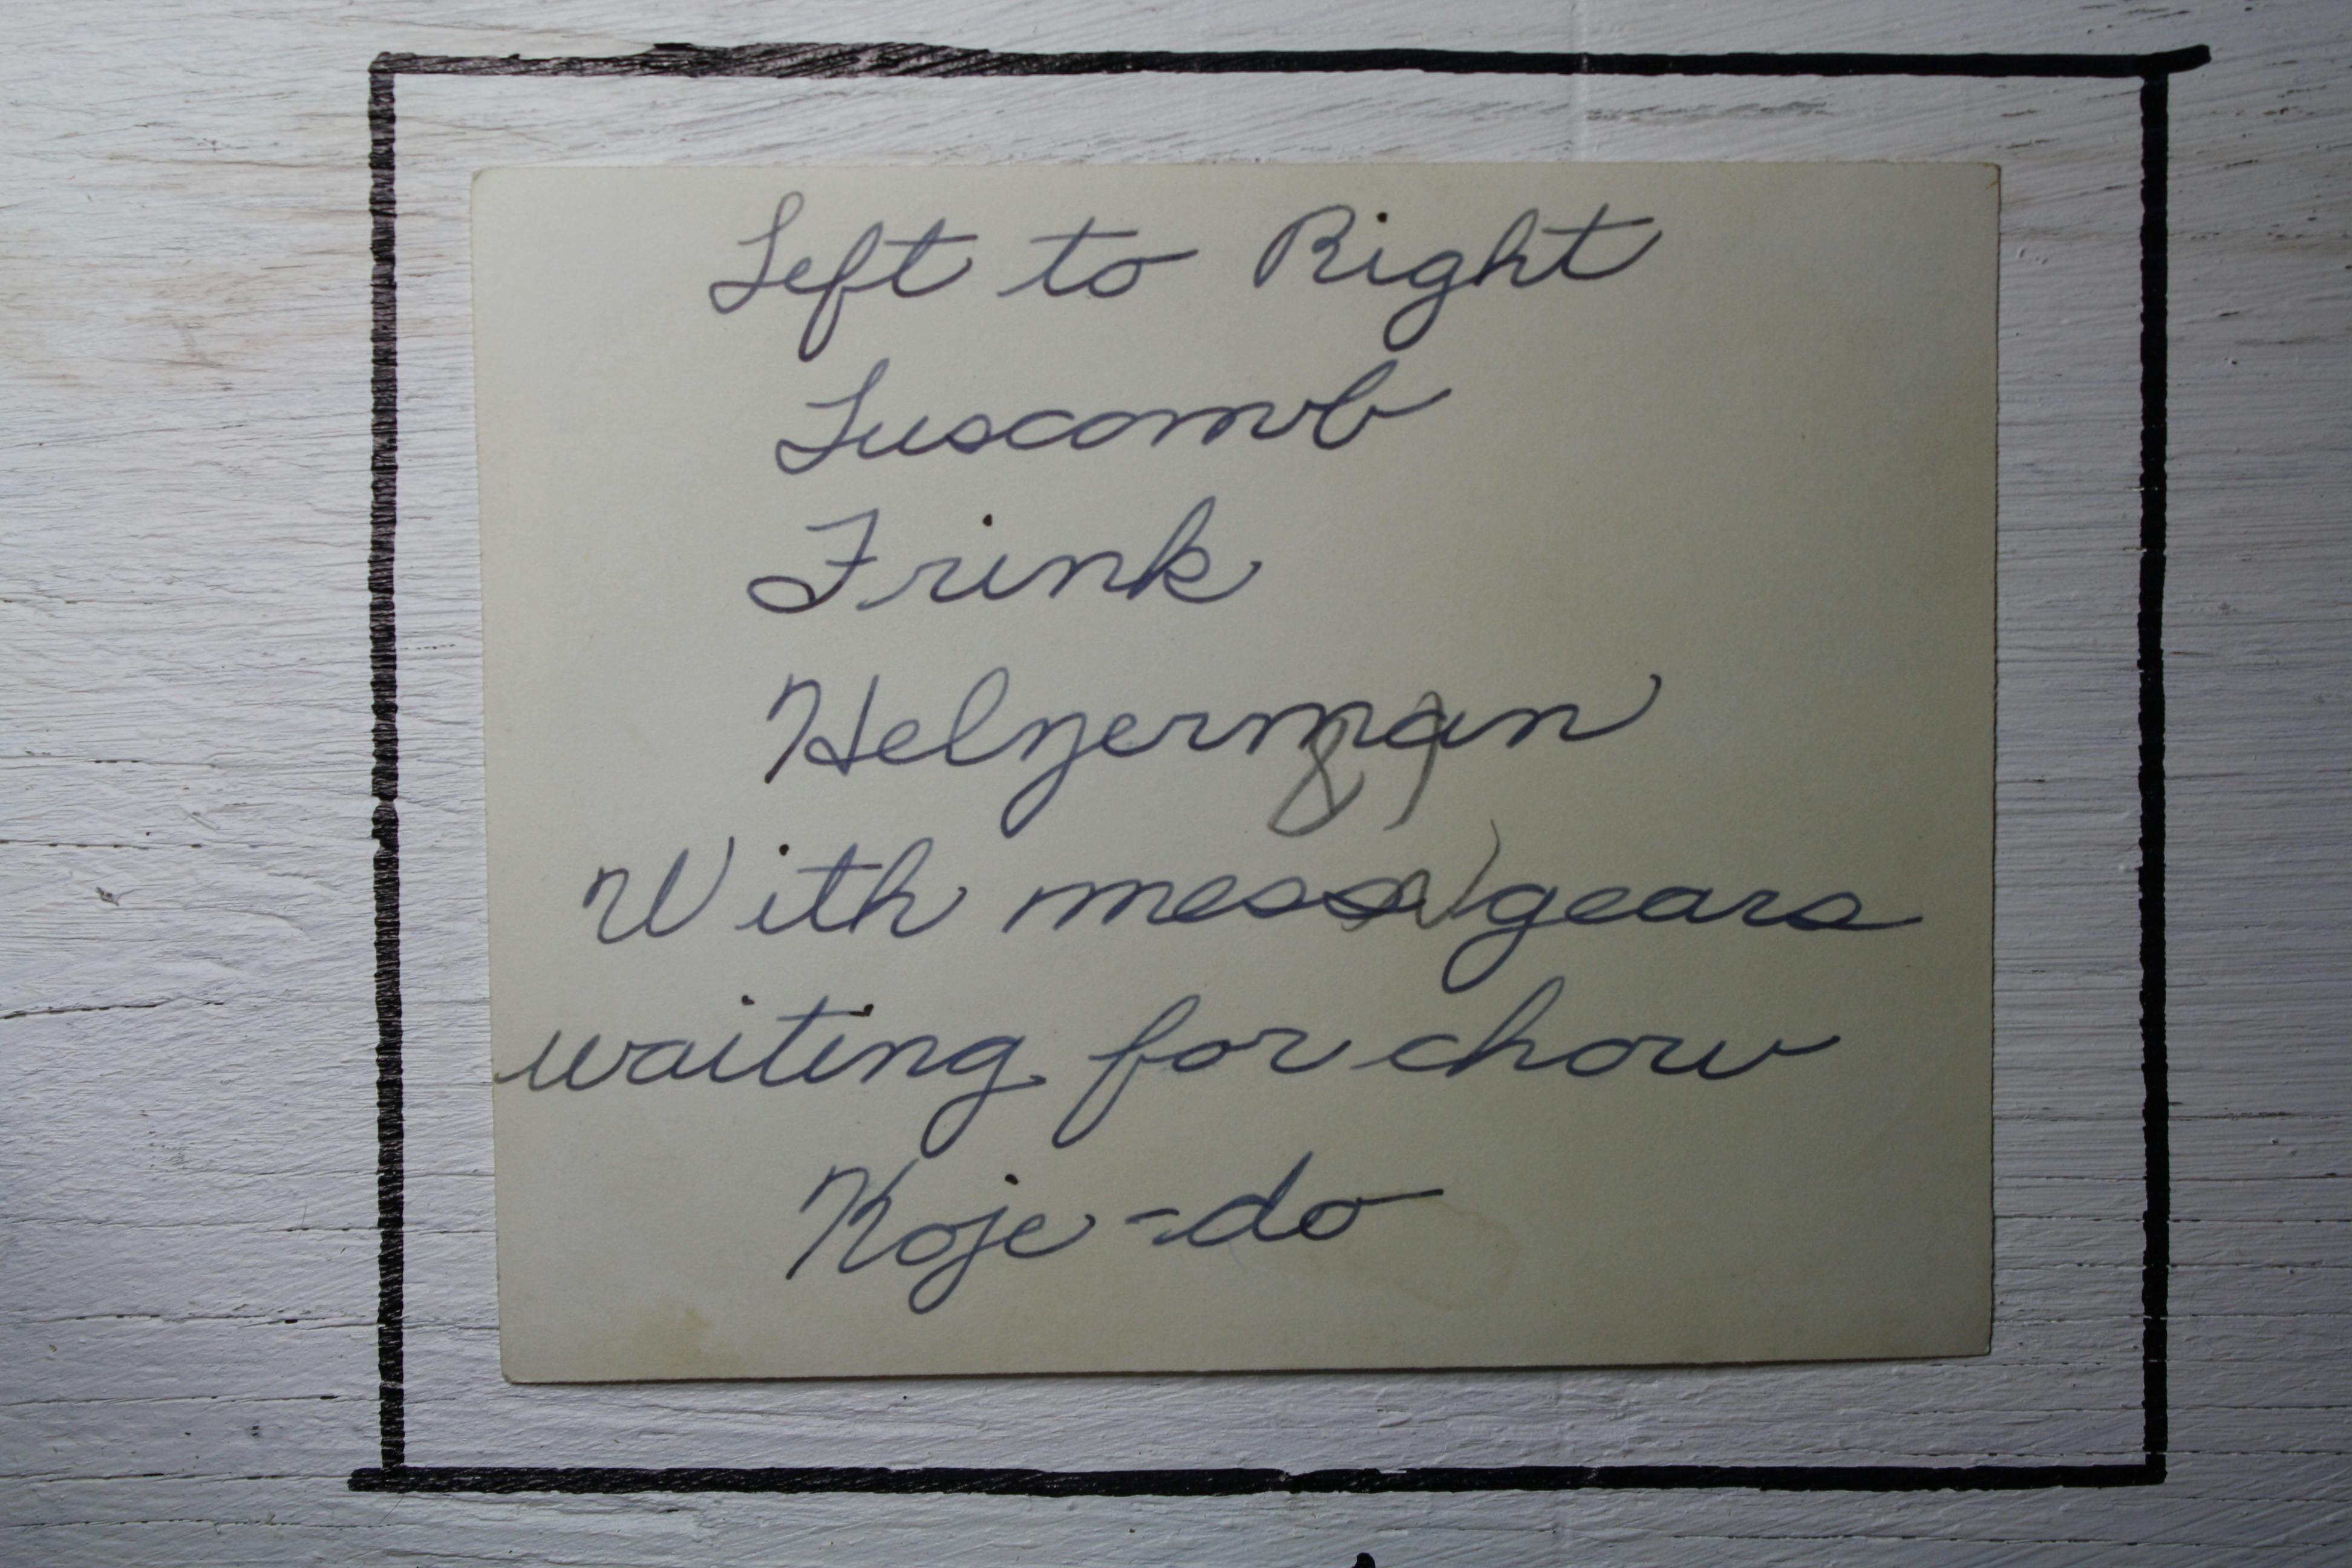 Left to Right
Luscomb
Frink
Helzerman
89
With mess gears
waiting for chow
Koje-do